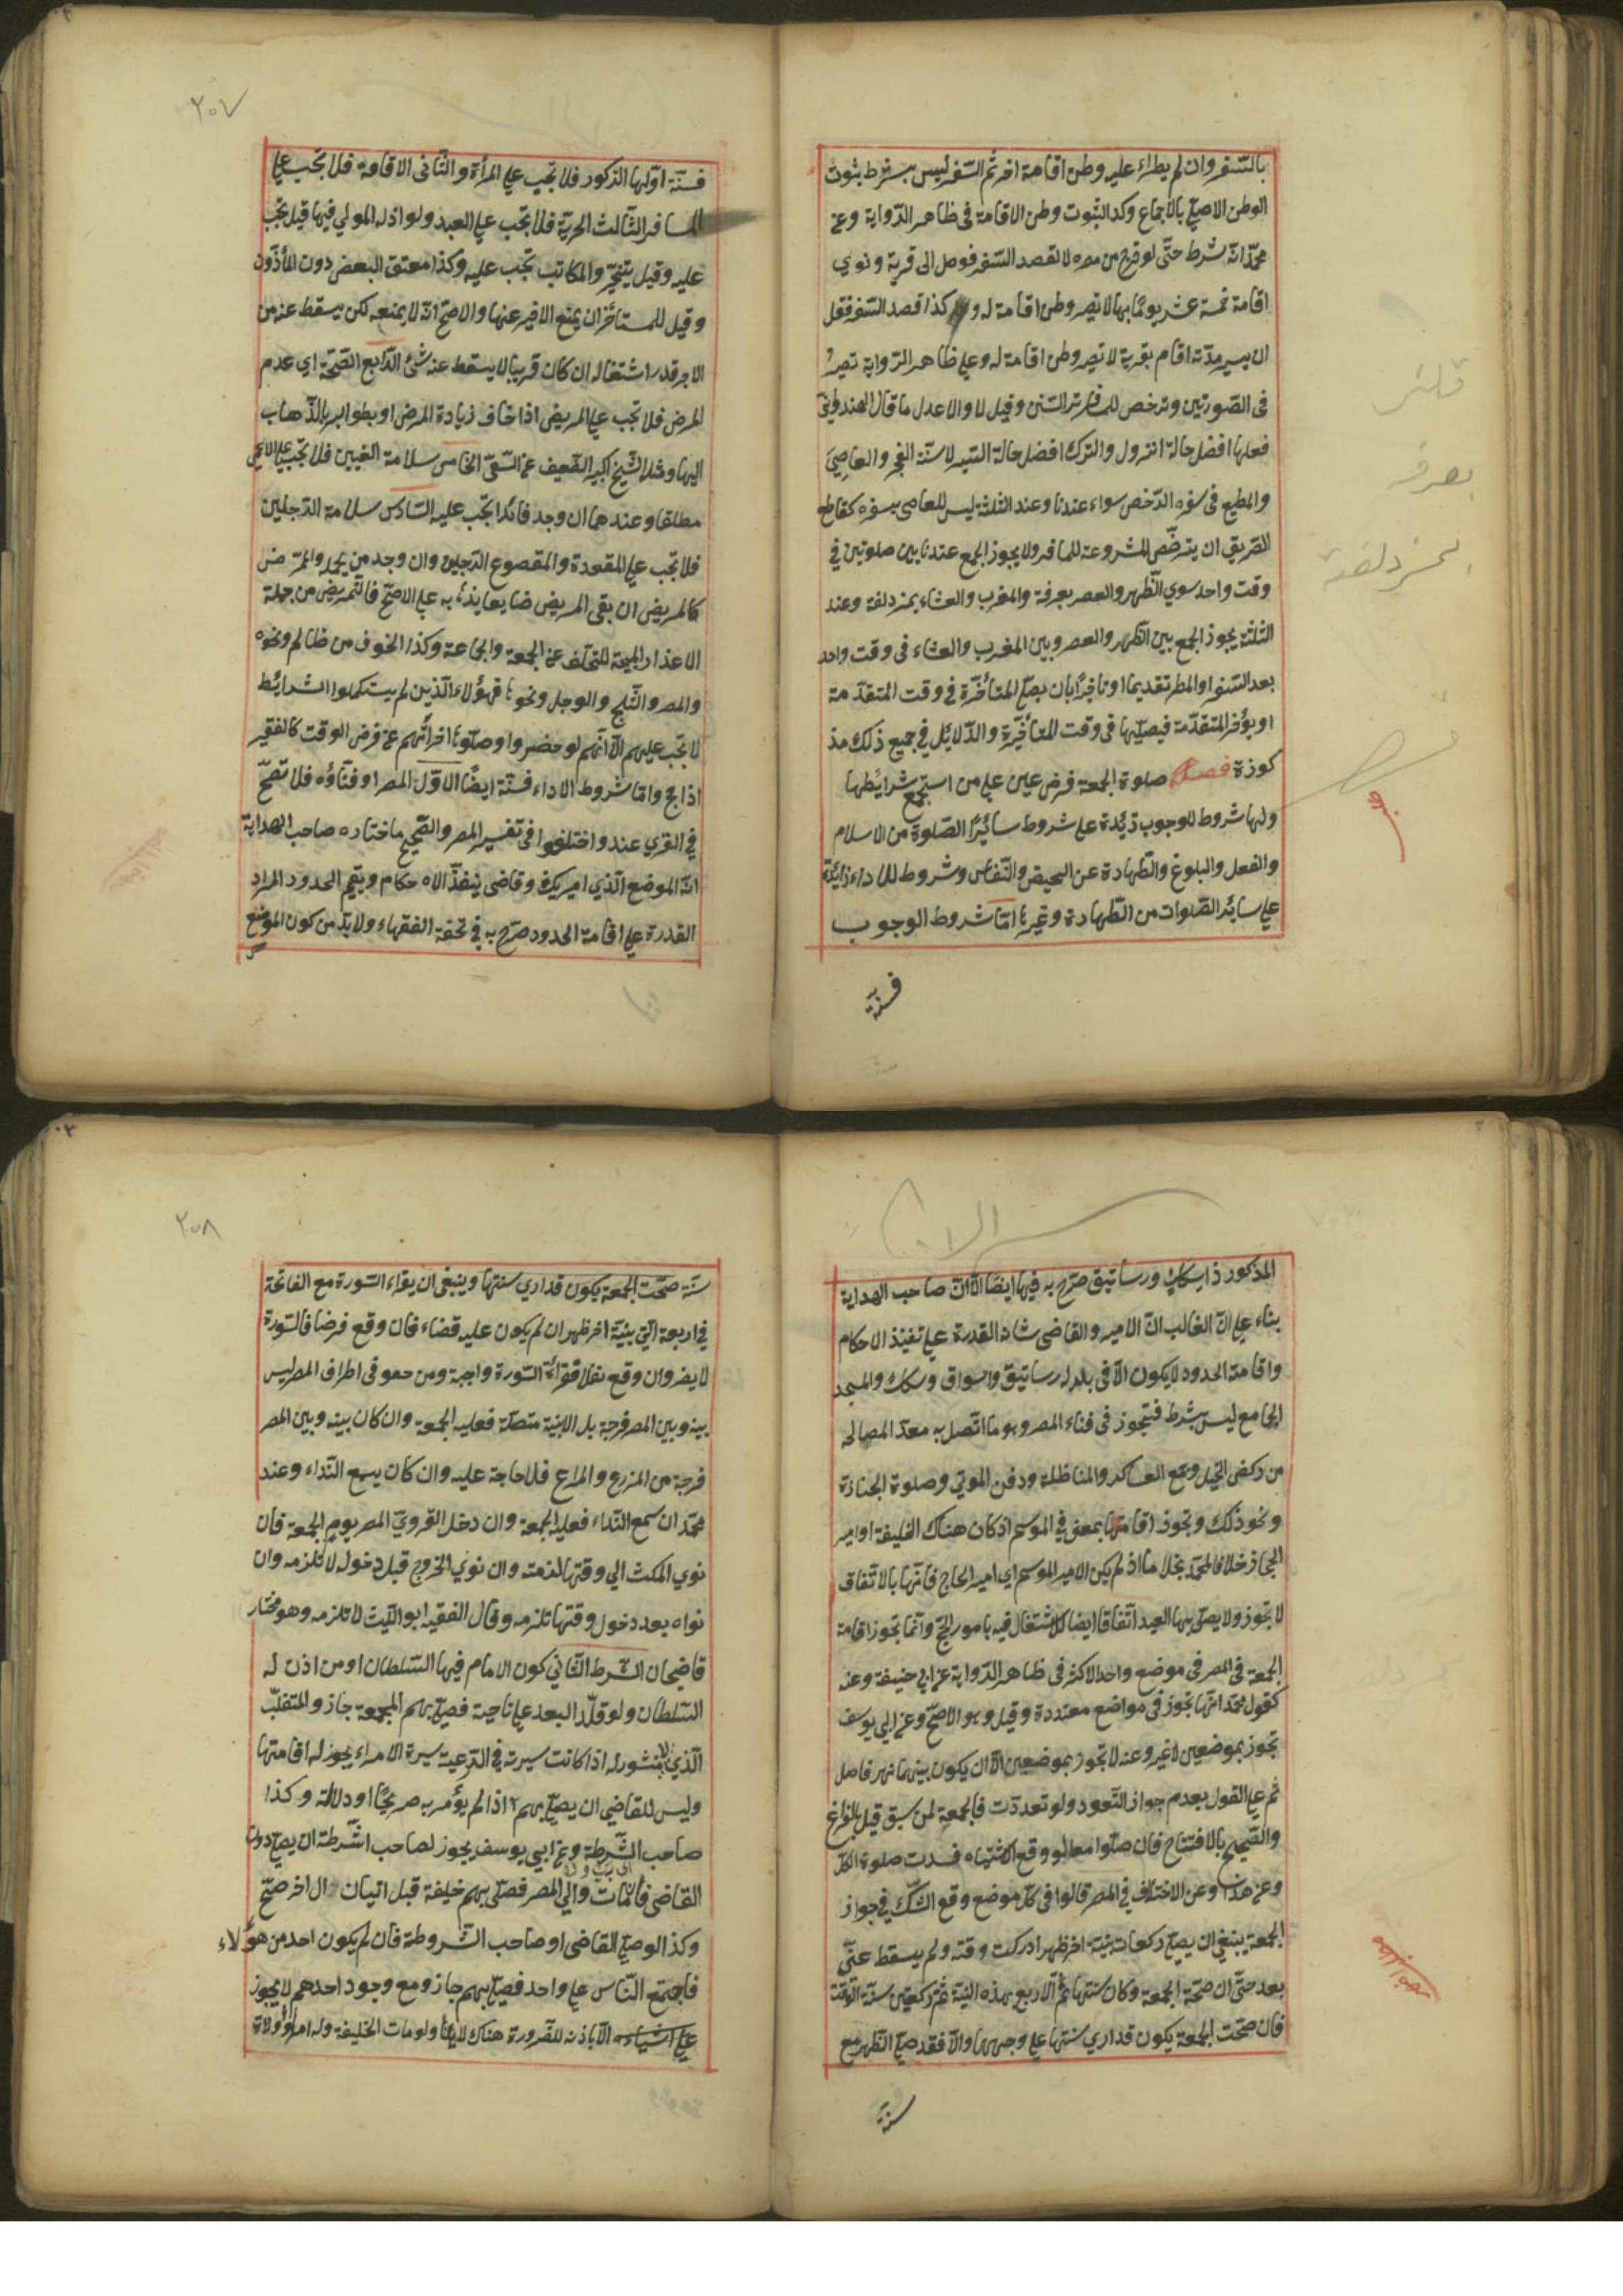 بالسّفر وان لم يطراء عليه وطن اقامة اخر ثم السّفر ليس بشرط بثوت
الوطن الاصلي بالاجماع وكذا لثبوت وطن الاقامة فى ظاهر الرّواية وعن
محمّد انّه شرط حتّى لو خرج من مصره لا لقصد السّفر فوصل الى قرية ونوي
اقامة خمسة عشر يومًا بها لا تصير وطن اقامة له و كذا قصد السّفر فقل
ان يسير مدّته اقام بقرية لا تصير وطن اقامة له وعلى ظاهر الرّواية تصير
فى الصّورتين وترخص للمسافر ترك السّنن وقيل لا والاعدل ما قال الهندوانى
فعلها افضل حالة النزول والترك افضل حالة السّير الا سنّة الفجر والعاصي
والمطيع فى سفره الرّخص سواء عندنا وعند الثلثة ليس للعاصى بسفره كقاطع
الطّريق ان يترخّص المشروعة للمسافر ولا يجوز الجمع عندنا بين صلوتين في
وقت واحد سوي الظّهر والعصر بعرفة والمغرب والعشاء بمزدلفة وعند
الثلثة يجوز الجمع بين الظّهر والعصر وبين المغرب والعشاء فى وقت واحد
بعد السّفر او المطر تقديما او تاخيرًا بان يصلّي المتأخّرة في وقت المتقدّمة
او يؤخر المتقدّمة فيصلّيها فى وقت المتأخيّرة والدّلائل في جميع ذلك مذ
كورة فصل صلوة الجمعة فرض عين على من استجمع شرائطها
ولها شروط للوجوب زئدة على شروط سائر الصّلوة من الاسلام
والفعل والبلوغ والطّهارة عن الحيض والنّفاس وشروط للاداء زائدة
على سائر الصّلوات من الطّهارة وغيرها امّا شروط الوجوب
فستّة
قلنر
بعرفه
بمزدلفة
٢٠٧
فستّة اوّلها الذكور فلا تجب على المرأة والثّانى الاقامة فلا تجب على
المسافر الثّالث الحريّة فلا تجب على العبد ولو اذن له المولي فيها قيل تجب
عليه وقيل يتخيّر والمكاتب تجب عليه وكذا معتق البعض دون المأذون
وقيل للمستأجر ان يمنع الاجير عنها والاصحّ انّه لا يمنعه لكن يسقط عنه من
الاجر قدر اشتغاله ان كان قريبا لا يسقط عنه شئ الرّابع الصّحّة اي عدم
المرض فلا تجب على المريض اذا خاف زيادة المرض او بطو ابر بالذّهاب
اليها ومثله الشّيخ الكبير الضّعيف عن السّعى الخامس سلامة العينين فلا تجب على الاعمى
مطلقا وعندهما ان وجد قائدا تجب عليه السّادس سلامة الرّجلين
فلا تجب على المقعدة والمقصوع الرّجلين وان وجد من يحمله والممرّض
كالمريض ان بقى المريض ضايعا يذها به على الاصحّ فالتّمريض من جملة
الاعذار المبيحة للتخلّف عن الجمعة والجماعة وكذا الخوف من ظالم ونحوه
والمصر والثّلج والوحل ونحوها فهؤلاء الّذين لم يستكملوا الشرائط
لا تجب عليهم الّا انّهم لو حضروا وصلّوها اجزأتهم عن فرض الوقت كالفقير
اذا حج وامّا شروط الاداء فستّة ايضًا الاوّل المصر او فنآؤه فلا تصحّ
في القري عند واختلفوا فى تفسير المصر والصّحيح ما ختاره صاحب الهداية
انّه الموضع الّذي امير يكون وقاضى ينفّذ الاحكام ويقيم الحدود المراد
القدرة على اقامة الحدود صرّح به فى تحفة الفقهاء ولا بدّ من كون الموضع
المذكور ذا سكك ورساتيق صرّح به فيها ايضًا الّا انّ صاحب الهداية
بناء على انّ الغالب انّ الامير والقاضى شان القدرة على تنفيذ الاحكام
واقامة الحدود لا يكون الّا فى بلد له رساتيق واسواق وسكك والمسجد
الجامع ليس بشرط فيتجوز فى فناء المصر وهو ما اتّصل به معدّ المصالحه
من ركض الخيل وجمع العساكر والمناظلة ودفن الموتي وصلوة الجنازة
ونحو ذلك وتجوز اقامتها بمعنى في الموسم اذ كان هناك الخليفة او امير
الحجاز خلافا لمحمّد بخلا ما اذ لم يكن الامير الموسم اي امير الحاج فانّها بالاتّفاق
لا تجوز ولا يصلّى بها العيد اتّفاقا ايضا للاشتغال فيه بامور الحجّ وانّما تجوز اقامة
الجمعة فى المصر فى موضع واحد لاكثر فى ظاهر الرّواية عن ابي حنيفة وعنه
كقول محمّد انّها تجوز فى مواضع متعدّدة وقيل وهو الاصحّ وعن ابي يوسف
تجوز بموضعين لا غير وعنه لا تجوز بموضعين الّا ان يكون بينهما نهر فاصل
ثم على القول بعدم جواز التّعود ولو تعدّدت فالجمعة لمن سبق قيل بالفراغ
والصّحيح بالافتتاح فان صلّوا معا او وقع الاشتباه فسدت صلوة الكلّ
وعن هذا وعن الاختلاف في المصر قالوا فى كلّ موضع وقع الشّك في جواز
الجمعة ينبغي ان يصلّي ركعات بنيّة اخر ظهر ادركت وقته ولم يسقط عنّي
بعد حتّى ان صحّة الجمعة وكان سنتها ثمّ الاربع بهذه النيّة ثمّ ركعتين سنّة الوقت
فان صحّت الجمعة يكون قد اري سنتها على وجهها والّا فقد صلّى الظّهر مع
سنة
٢٠٨
سنّة صحّت الجمعة يكون قد اري سنتها وينبغى ان يقراء السّورة مع الفاتحة
في اربعة الّتي بنيّة اخر ظهر ان لم يكون عليه قضاء فان وقع فرضا فالسّورة
لا يضر وان وقع نفلا فقرأة السّورة واجبة ومن هو فى اطراف المصر ليس
بينه وبين المصر فرجة بل الابنية متصلة فعليه الجمعة وان كان بينه وبين المصر
فرجة من المزارع والمراع فلا حاجة عليه وان كان يسمع النّداء وعند
محمّد ان سمع النّداء فعليه الجمعة وان دخل القرويّ المصر يوم الجمعة فان
نوي المكث الي وقتها لزمته وان نوي الخروج قبل دخوله لا تلزمه وان
نواه بعد دخول وقتها تلزمه وقال الفقيه ابو اللّيث لا تلزمه وهو مختار
قاضيخان الشّرط الثّاني كون الامام فيها السّلطان او من اذن له
السّلطان ولو قلّد البعد على ناحية فصلّي بهم الجمعة جاز والمتغلّب
الّذي لا منشور له اذا كانت سيرته في الرّعيّة سيرة الامراء يجوز له اقامتها
وليس للقاضي ان يصلّي بهم اذا لم يؤمر به صريحًا او دلالة وكذا
صاحب الشّرطة وعن ابي يوسف يجوز لصاحب الشّرطة ان يصلّي دون
القاضى فان مات والي المصر فصلّى بهم خليفة قبل اتيان ال اخر صحّ
وكذا لو صلّي القاضى او صاحب الشّروطة فان لم يكون احد من هؤلاء
فاجتمع النّاس على واحد فصلّي بهم جاز ومع وجود احدهم لا يجوز
الّا باذنه للضّرورة هناك ولو مات الخليفة وله امراء وولاة